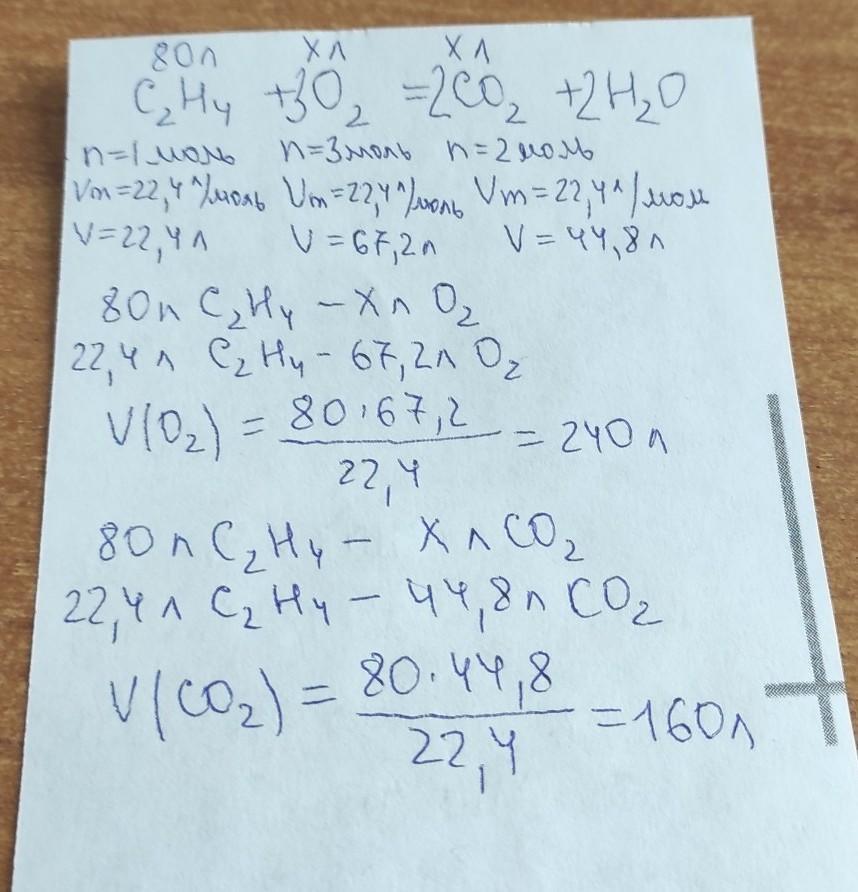 80л xл xл
C₂H₄ +3O₂ =2CO₂ +2H₂O
n=1моль n=3моль n=2моль
Vm=22,4 л/моль Vm=22,4 л/моль Vm=22,4 л/мол
V=22,4 л V=67,2л V=44,8 л
80л C₂H₄ – x л O₂
22,4 л C₂H₄ – 67,2л O₂
V(O₂) = 80·67,2 / 22,4 = 240 л
80 л C₂H₄ – x л CO₂
22,4л C₂H₄ – 44,8л CO₂
V(CO₂) = 80·44,8 / 22,4 =160л